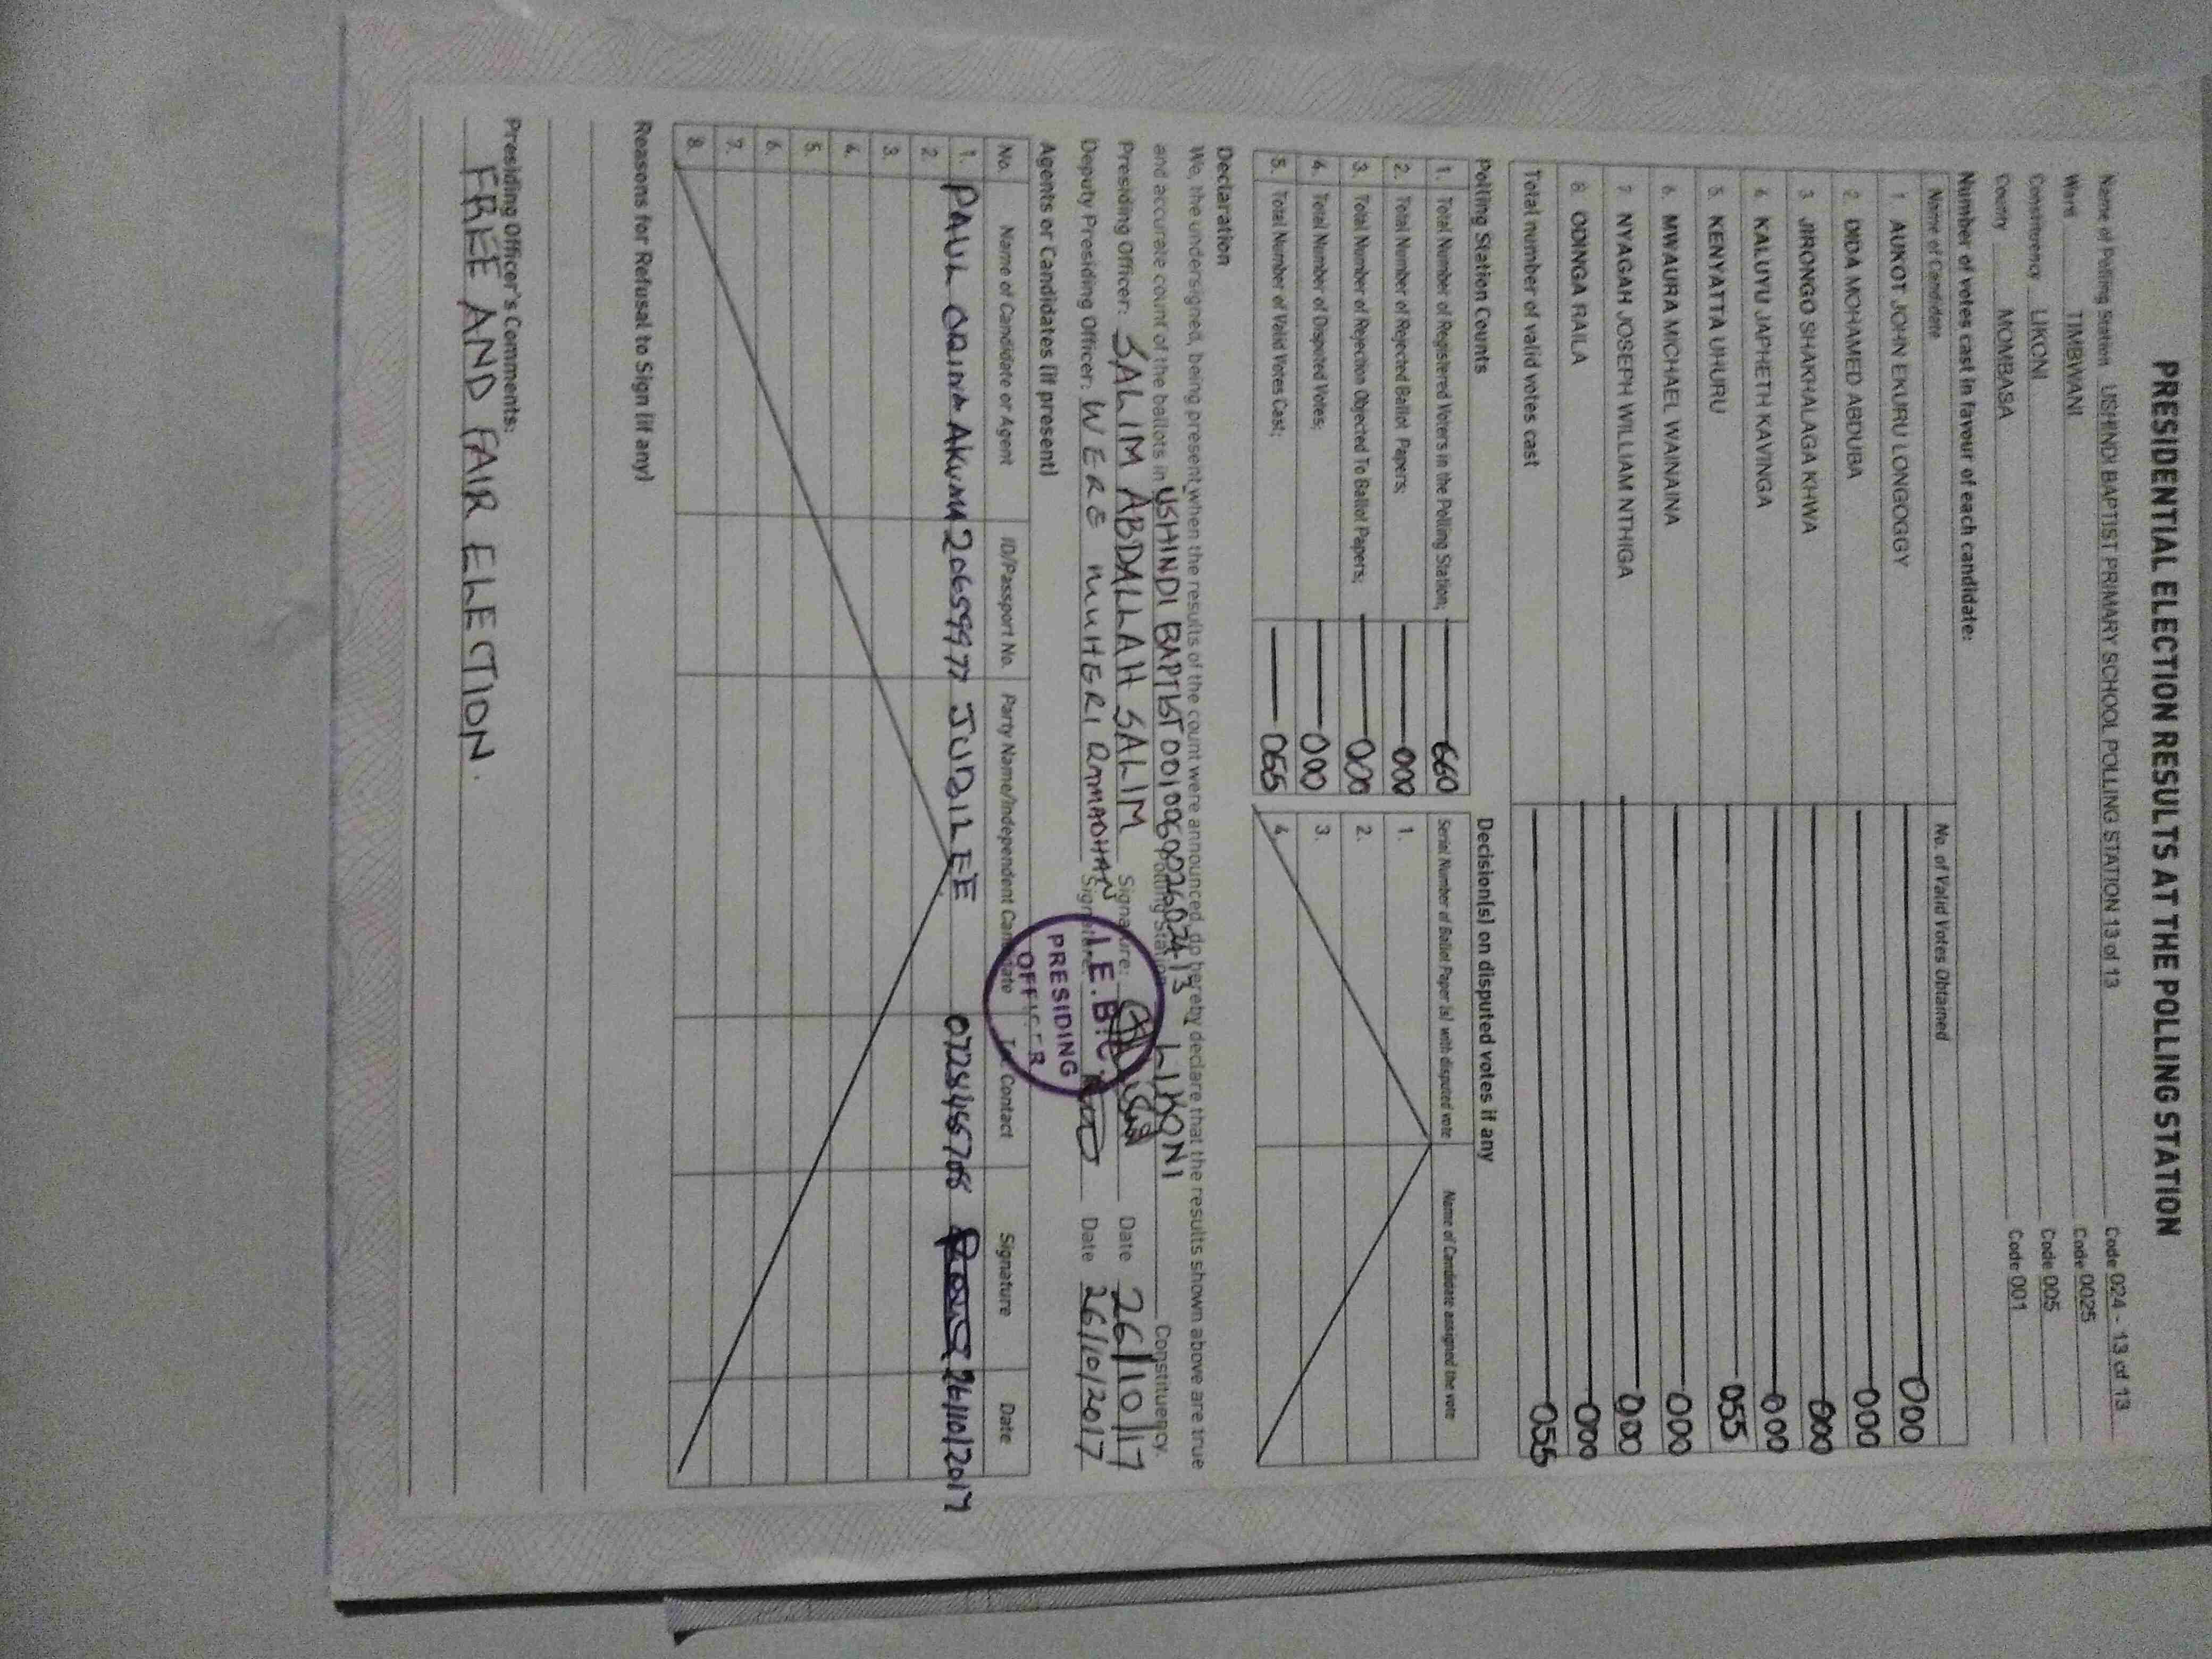 PRESIDENTIAL ELECTION RESULTS AT THE POLLING STATION
Name of Polling Station USHINDI BAPTIST PRIMARY SCHOOL POLLING STATION 13 of 13 Code 024 - 13 of 13
Ward TIMBWANI Code 0025
Constituency LIKONI Code 005
County MOMBASA Code 001
Number of votes cast in favour of each candidate:
Name of Candidate No. of Valid Votes Obtained
1 AUKOT JOHN EKURU LONGOGGY 000
2 DIDA MOHAMED ABDUBA 000
3 JIRONGO SHAKHALAGA KHWA 000
4 KALUYU JAPHETH KAVINGA 000
5 KENYATTA UHURU 055
6 MWAURA MICHAEL WAINAINA 000
7 NYAGAH JOSEPH WILLIAM NTHIGA 000
8 ODINGA RAILA 000
Total number of valid votes cast 055
Polling Station Counts
1. Total Number of Registered Voters in the Polling Station; 660
2. Total Number of Rejected Ballot Papers; 000
3. Total Number of Rejection Objected To Ballot Papers; 000
4. Total Number of Disputed Votes; 000
5. Total Number of Valid Votes Cast; 055
Decision(s) on disputed votes if any
Serial Number of Ballot Paper (s) with disputed vote Name of Candidate assigned the vote
1.
2.
3.
4.
Declaration
We, the undersigned, being present when the results of the count were announced, do hereby declare that the results shown above are true
and accurate count of the ballots in USHINDI BAPTIST Polling Station LIKONI Constituency.
Presiding Officer: SALIM ABDALLAH SALIM Signature: Date 26/10/17
Deputy Presiding Officer: WERE MUHERI RAMADHAN Signature: Date 26/10/2017
I.E.B.C.
PRESIDING
OFFICER
Agents or Candidates (if present)
No. Name of Candidate or Agent ID/Passport No. Party Name/Independent Candidate Tel. Contact Signature Date
1. PAUL 20659977 JUBILEE 26/10/2017
2.
3.
4.
5.
6.
7.
8.
Reasons for Refusal to Sign (if any)
Presiding Officer's Comments:
FREE AND FAIR ELECTION.